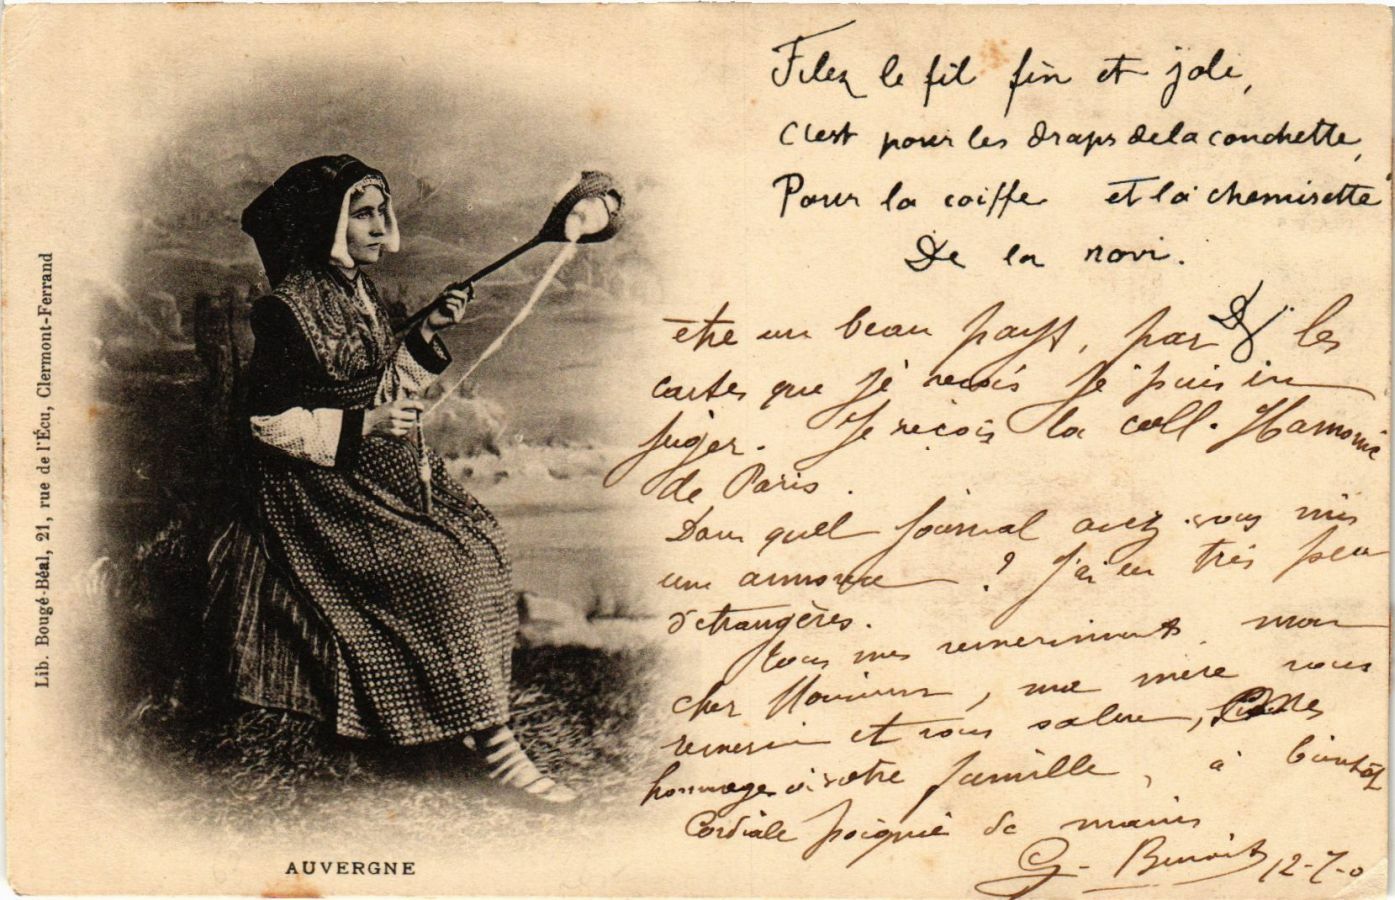 Filez le fil fin et joli,
C'est pour les draps de la couchette,
Pour la coiffe et la chemisette
De la novi.
être un beau pays, par les
cartes que je reçois je puis en
juger. Je reçois la coll. Harmonie
de Paris.
Dans quel journal avez vous mis
une annonce ? J'ai eu très peu
d'étrangères.
tous mes remerciments mon
cher Monsieur, ma mère vous
remercie et vous salue,
hommages à votre famille, à bientôt
Cordiale poignée de mains
G. Benoit 12-7-0
Lib. Bougé-Béal, 21, rue de l'Écu, Clermont-Ferrand
AUVERGNE